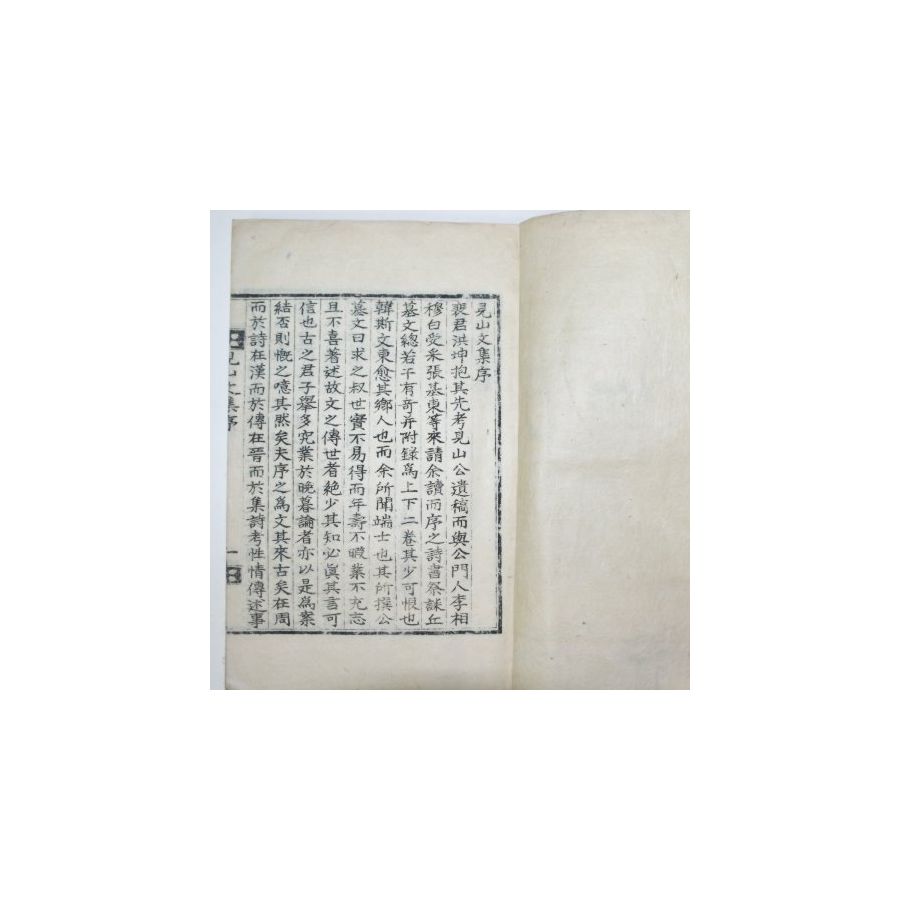 見山文集序
裴君洪坤抱其先考見山公遺稿而與公門人李相
穆白受采張基東等來請余讀而序之詩書祭誄丘
墓文總若干有奇幷附錄爲上下二卷其少可恨也
韓斯文東愈其鄕人也而余所聞端士也其所撰公
墓文曰求之叔世實不易得而年壽不暇業不充志
且不喜著述故文之傳世者絶少其知必眞其言可
信也古之君子擧多究業於晩暮論者亦以是爲案
結否則慨之噫其然矣夫序之爲文其來古矣在周
而於詩在漢而於傳在晉而於集詩考性情傳述事
見山文集序
一